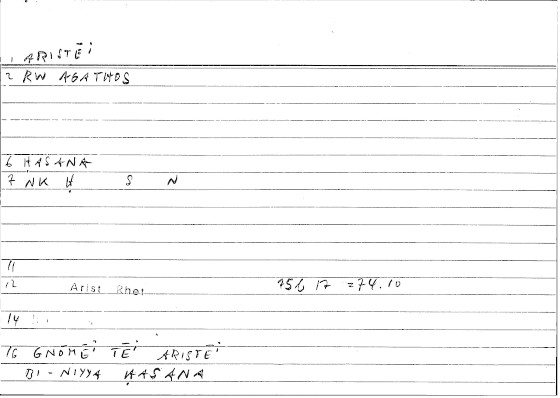 1 ARISTĒⁱ
2 RW AGATHOS
6 ḤASANA
7 NK Ḥ S N
11
12 Arist Rhet 75b 17 =74.10
14
16 GNŌMĒⁱ TĒⁱ ARISTĒⁱ
BI-NIYYA ḤASANA